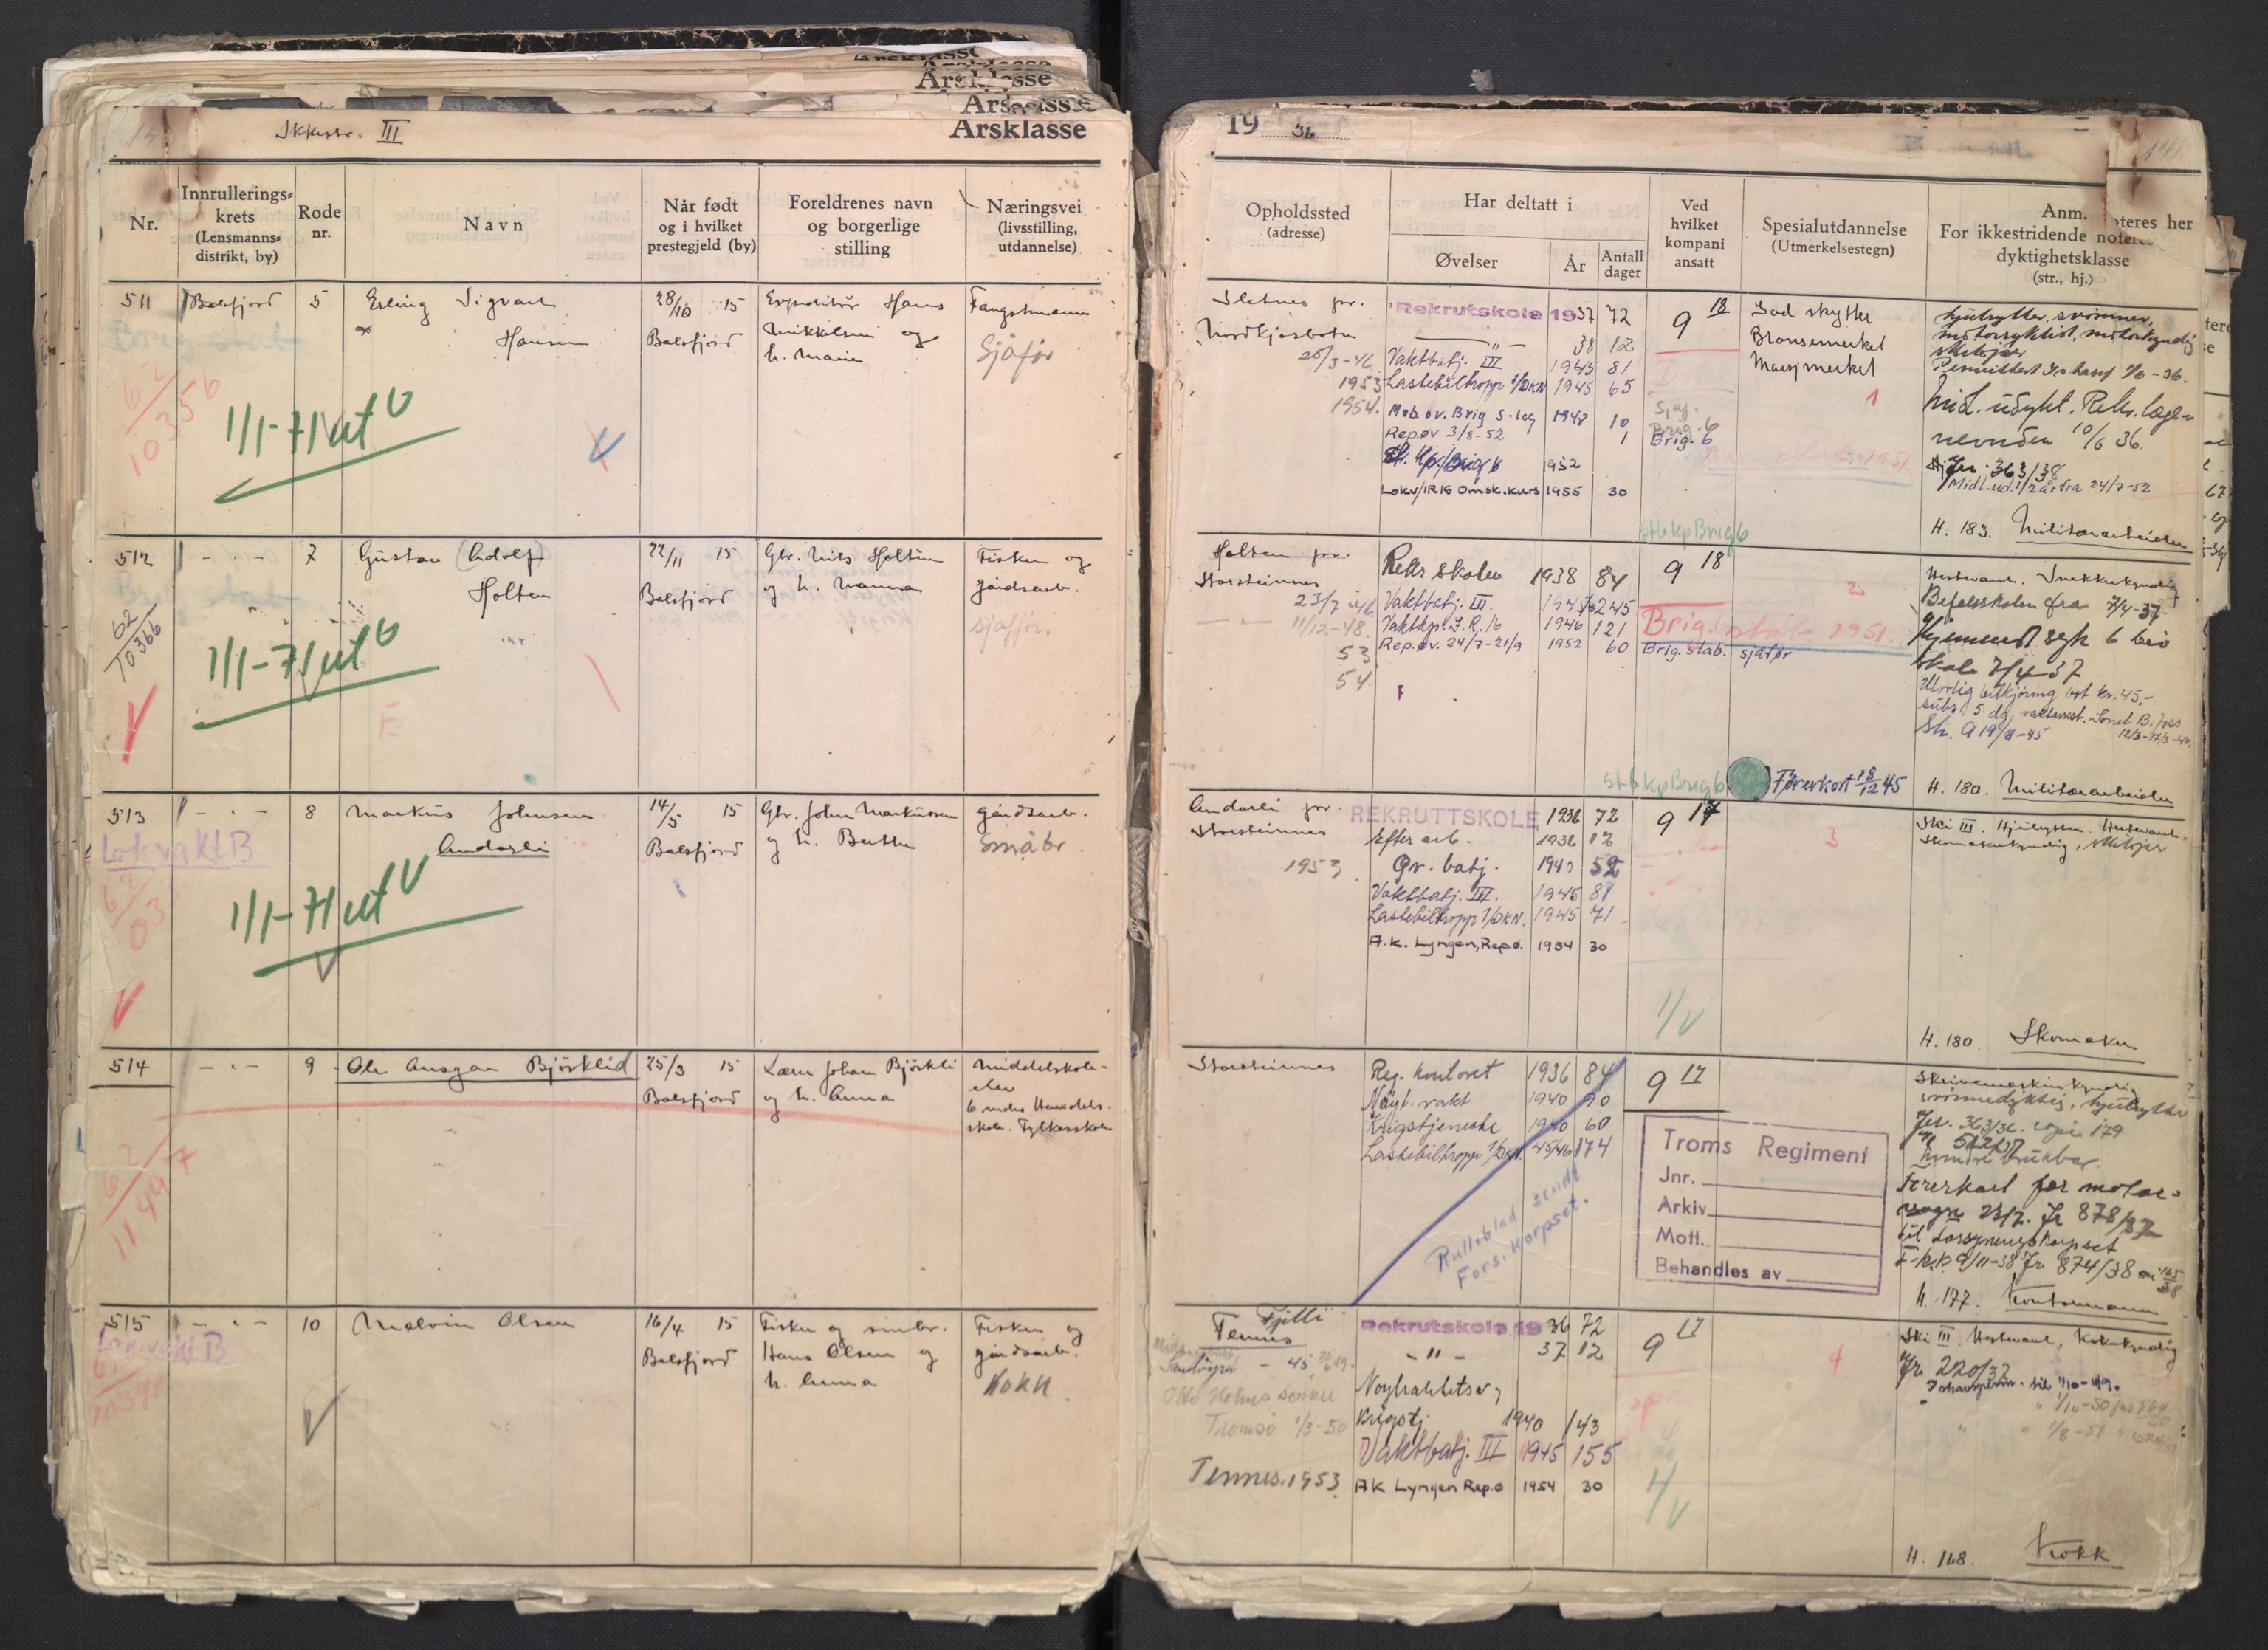 Ikkestr. III
Årsklasse
Nr.
Innrullerings-
krets
(Lensmanns-
distrikt, by)
Rode
nr.
Navn
Når født
og i hvilket
prestegjeld (by)
Foreldrenes navn
og borgerlige
stilling
Næringsvei
(livsstilling,
utdannelse)
511 Balsfjord 5 Erling Sigvart
Hansen
28/10 15
Balsfjord
Expeditør Hans
Mikkelsen og
h. Marie
Fangstmann
Sjåfør
62/10356
1/1-71 ut
512 - " - 7 Gustav (Adolf)
Holten
22/11 15
Balsfjord
Gbr. Nils Holten
og h. Nanna
Fisker og
gårdsarb.
sjåfør.
62/10366
1/1-71 ut
E
513 - " - 8 Markus Johnsen
Andorli
14/5 15
Balsfjord
Gbr. John Markussen
og h. Berthe
gårdsarb.
Småbr.
Lokvakt B
1/1-71 ut
514 - " - 9 Ole Ansgar Bjørklid
25/3 15
Balsfjord
Lærer Johan Bjørkli
og h. Anna
Middelskole-
elev
6 mndrs Handels-
skole. Fylkesskole
62/11497
515 - " - 10 Malvin Olsen
16/4 15
Balsfjord
Fisker og småbr.
Hans Olsen og
h. Anna
Fisker og
gårdsarb.
Kokk
Lokvakt B
19 36
Opholdssted
(adresse)
Har deltatt i
Øvelser
År
Antall
dager
Ved
hvilket
kompani
ansatt
Spesialutdannelse
(Utmerkelsestegn)
Anm.
For ikkestridende noteres her
dyktighetsklasse
(str., hj.)
Sletnes pr.
Nordkjosbotn
25/3-46
1953
1954.
Rekrutskole 1937 72
- " - 38 12
Vaktbatj. III 1945 81
Lastebiltropp 1/DKN 1945 65
Mob.øv. Brig S.leg 1948 10
Rep.øv 3/8-52 1
St. kp./Brig 6 1952
Lokv/IR16 Omsk.kurs 1955 30
9 18
Brig. 6
Brig. 6
God skytter
Bronsemerket
Marsjmerket
1
hjulrytter, svømmer,
motorsyklist, motorkyndig
skiløper
Permittert
Mid. udykt. Rekr. læge-
nevnden 10/6 36.
Jnr. 363/38
Midl.ud. 1/2 år fra 24/7-52
H. 183. Militærarbeider
Holten pr.
Storsteinnes
23/7-46
- " - 11/12-48.
53
54.
Rekr skolen 1938 84
Vaktbatj. III. 1945/6 245
Vaktkp. I.R. 16 1946 121
Rep.øv. 24/7-21/9 1952 60
F
Stbkp Brig 6
9 18
Brig. stab 1951.
Brig. stab. sjåfør
2
Hestevant. Snekkerkyndig
Befalsskolen fra 7/4-37
Hjemsendt syk 6 bris
skole 7/4-37
Ulovlig bilkjøring bøt kr. 45,-
subs. 5 dg. vaktarrest. Sonet B.foss
12/3-17/3-46.
H. 180. Militærarbeider
Stbkp Brig 6
Førerkort 18/12 45
Andorli pr.
Storsteinnes
1953
REKRUTTSKOLE 1936 72
Efter arb. 1936 12
Gr. batj. 1940 52
Vaktbatj. III. 1945 81
Lastebiltropp 1/DKN. 1945 71
A.K. Lyngen, Repø. 1954 30
9 17
3
Ski III. Hjulrytter. Hestevant.
Skomakerkyndig, skiløper
H. 180. Skomaker
Storsteinnes
Reg. kontoret 1936 84
Nøyt. vakt 1940 90
Krigstjeneste 1940 60
Lastebiltropp 1/DKN. 45/46 174
Rulleblad sendt
Fors. korpset.
9 17
Troms Regiment
Jnr.
Arkiv
Mott.
Behandles av
Skrivemaskinkyndig
svømmedyktig, hjulrytter
Jnr. 363/36. kopi 179
mindre brukbar.
Førerkort for motor-
vogn 23/7. Jr 878/37
til Forsyningskorpset
F.k.P. 9/11-38 Jr 874/38
H. 177. Kontormann
Fjelli
Tennes
Tromsø 1/3-50
Tennes. 1953
Rekrutskole 1936 72
- " - 37 12
Nøytralitetsv.,
krigstj. 1940 143
Vaktbatj. III 1945 155
AK Lyngen Repø 1954 30
9 17
4
Ski III. Hestevant, Kokekyndig
Jr. 220/37
H. 168. Kokk